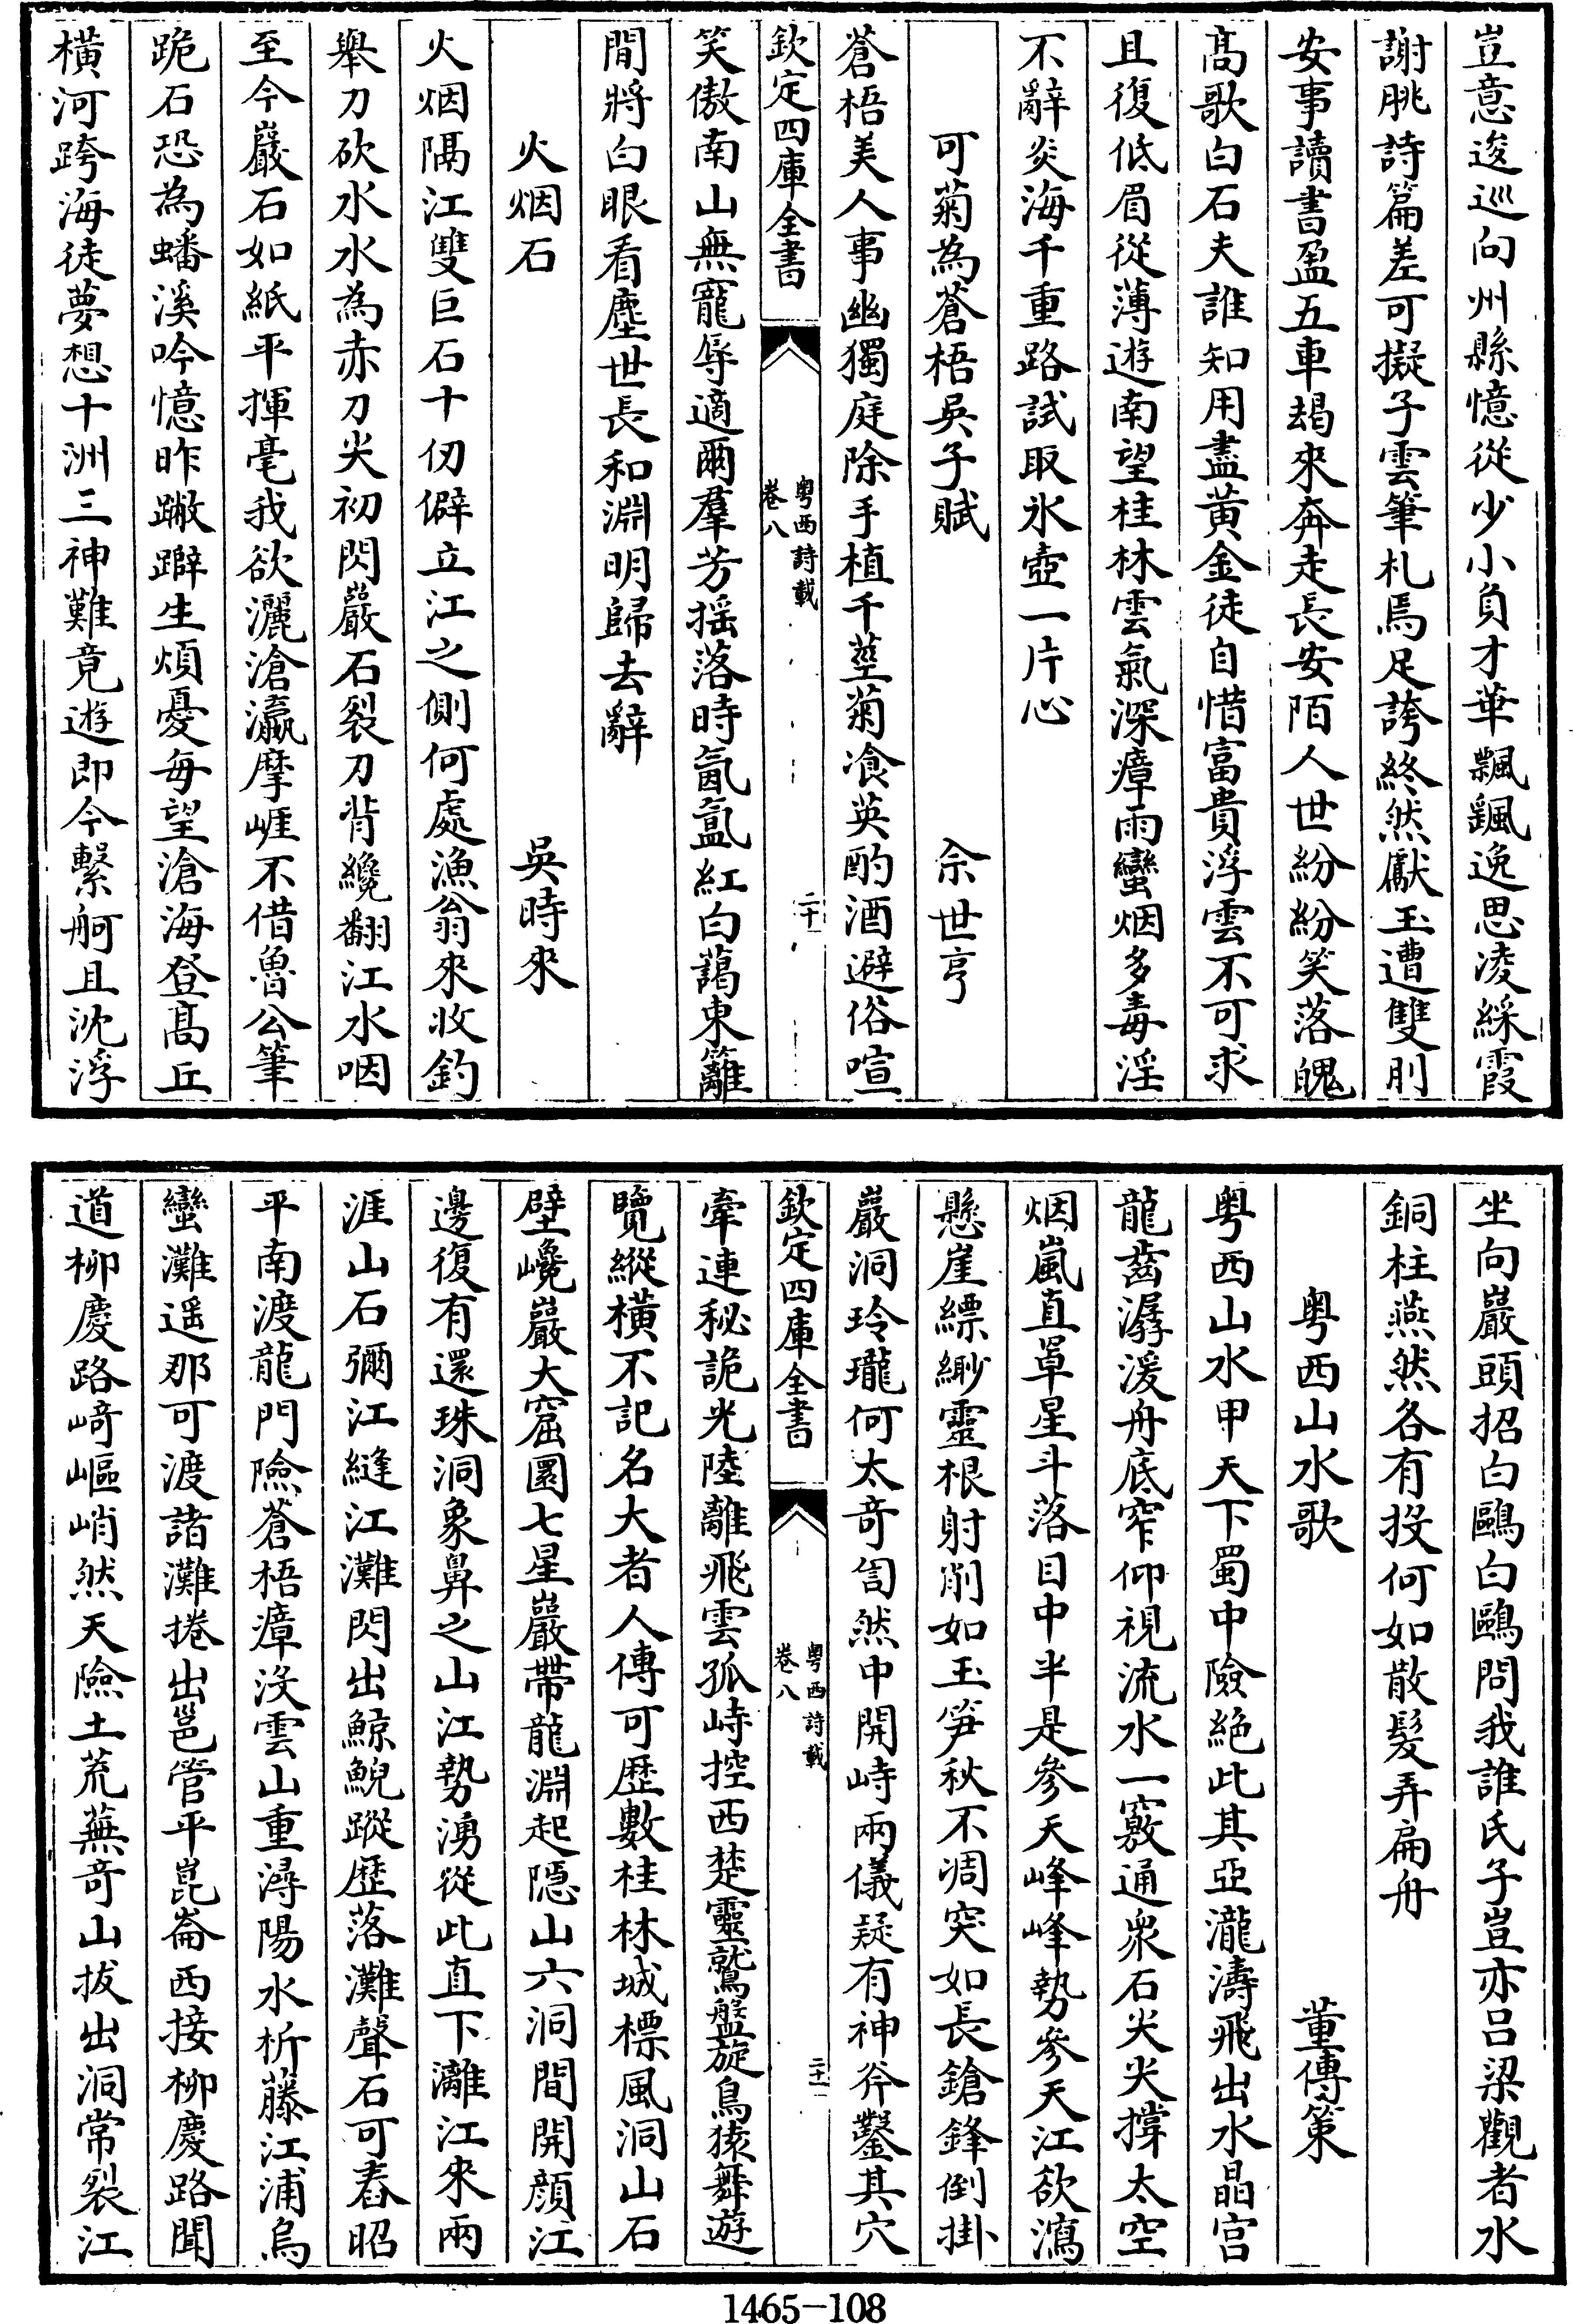 豈意逡巡向州縣憶從少小負才華飄颻逸思凌綵霞
謝朓詩篇差可擬子雲筆札焉足誇終然獻玉遭雙刖
安事讀書盈五車朅來奔走長安陌人世紛紛笑落魄
高歌白石夫誰知用盡黃金徒自惜富貴浮雲不可求
且復低眉從薄遊南望桂林雲氣深瘴雨蠻烟多毒淫
不辭炎海千重路試取氷壺一片心
可菊為蒼梧吳子賦 佘世亨
蒼梧美人事幽獨庭除手植千莖菊飡英酌酒避俗喧
欽定四庫全書 粵西詩載 卷八 二十
笑傲南山無寵辱適爾羣芳揺落時氤氲紅白藹東籬
閒將白眼看塵世長和淵明歸去辭
火烟石 吳時來
火烟隔江雙巨石十仞僻立江之側何處漁翁來收釣
舉刀砍水水為赤刀尖初閃巖石裂刀背纔翻江水咽
至今巖石如紙平揮毫我欲灑滄瀛摩崕不借魯公筆
跪石恐為蟠溪吟憶昨蹴躃生煩憂每望滄海登高丘
橫河跨海徒夢想十洲三神難竟遊即今繫舸且沈浮
坐向巖頭招白鷗白鷗問我誰氏子豈亦呂梁觀者水
銅柱燕然各有投何如散髮弄扁舟
粵西山水歌 董傳策
粵西山水甲天下蜀中險絕此其亞瀧濤飛出水晶宮
龍齒潺湲舟底窄仰視流水一竅通衆石尖尖撐太空
烟嵐直罩星斗落目中半是參天峰峰勢參天江欲瀉
懸崖縹緲靈根射削如玉笋秋不凋突如長鎗鋒倒掛
巖洞玲瓏何太奇訇然中開峙兩儀疑有神斧鑿其穴
欽定四庫全書 粵西詩載 卷八 二十一
牽連秘詭光陸離飛雲孤峙控西楚靈鷲盤旋鳥猿舞遊
覽縱橫不記名大者人傳可歷數桂林城標風洞山石
壁巉巖大窟圜七星巖帶龍淵起隱山六洞間開顔江
邊復有還珠洞象鼻之山江勢湧從此直下灕江來兩
涯山石彌江縫江灘閃出鯨鯢蹤歷落灘聲石可舂昭
平南渡龍門險蒼梧瘴沒雲山重潯陽水析藤江浦烏
蠻灘遥那可渡諸灘捲出邕管平崑崙西接柳慶路聞
道柳慶路﨑嶇峭然天險土荒蕪奇山拔出洞常裂江
1465-108